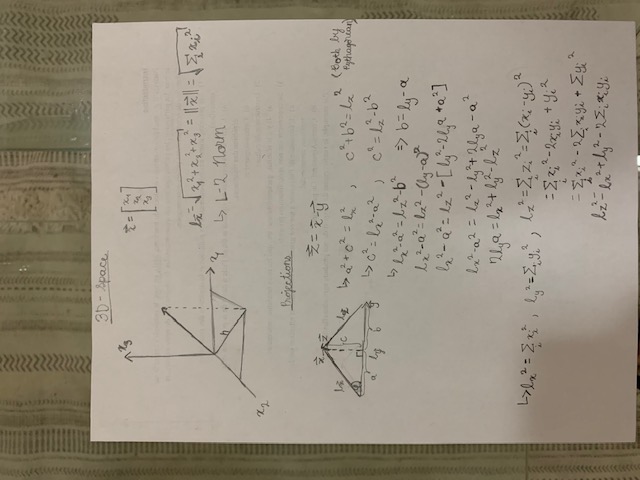 3D-Space
x₃
x⃗ = [x₁ x₂ x₃]
lx⃗ = √(x₁²+x₂²+x₃²) = ||x⃗|| = √(Σᵢ xᵢ²)
↳ L-2 Norm
x₁
h
x₂
Projections
z⃗ = x⃗-y⃗
x⃗ z⃗
lx c lz
a ly b y⃗
↳ a²+c² = lx² , c²+b² = lz² (Both by Pythagorian)
↳ c² = lx²-a² , c² = lz²-b²
↳ lx²-a² = lz²-b² ⇒ b = ly-a
lx²-a² = lz²-(ly-a)²
lx²-a² = lz²-[ly²-2lya+a²]
lx²-a² = lz²-ly²+2lya-a²
2lya = lx²+ly²-lz²
↳ lx² = Σᵢ xᵢ² , ly² = Σᵢ yᵢ² , lz² = Σᵢ zᵢ² = Σᵢ (xᵢ-yᵢ)²
= Σᵢ xᵢ²-2xᵢyᵢ+yᵢ²
= Σᵢ xᵢ²-2Σxᵢyᵢ+Σyᵢ²
lz² = lx²+ly²-2Σᵢ xᵢyᵢ